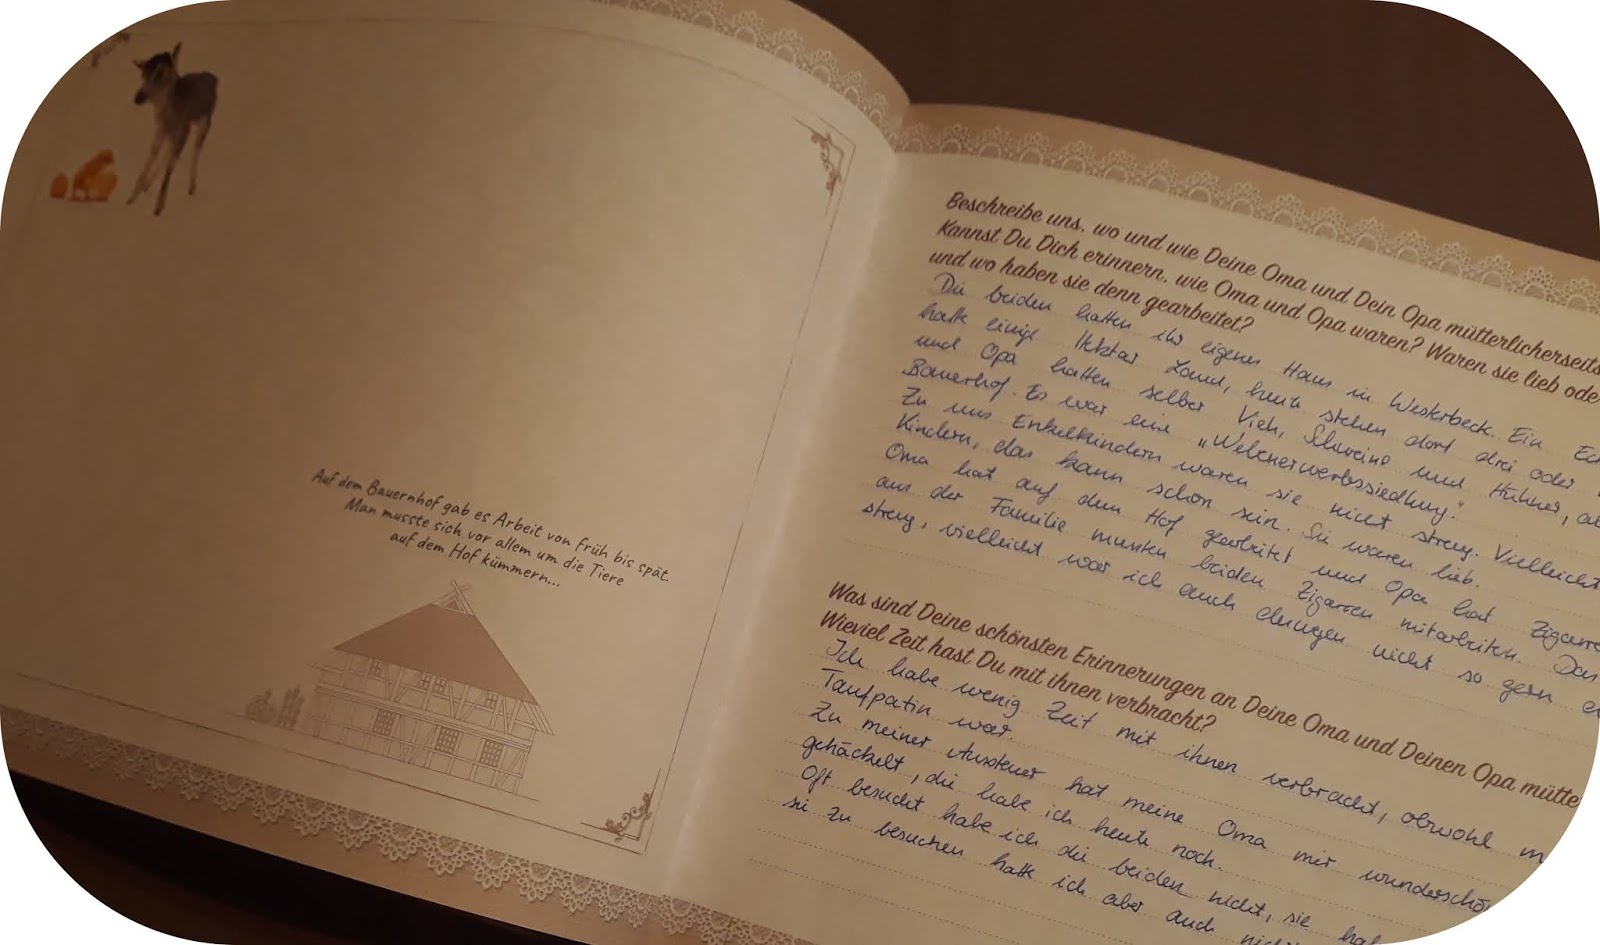 Auf dem Bauernhof gab es Arbeit von früh bis spät.
Man musste sich vor allem um die Tiere
auf dem Hof kümmern...
Beschreibe uns, wo und wie Deine Oma und Dein Opa mütterlicherseits
Kannst Du Dich erinnern, wie Oma und Opa waren? Waren sie lieb ode
und wo haben sie denn gearbeitet?
Die beiden hatten ihr eigenes Haus in Westerbeck. Ein
hatte einige Hektar Land, heute stehen dort drei oder
und Opa hatten selber Vieh, Schweine und Hühner,
Bauerhof. Es war eine „Nebenerwerbssiedlung."
Zu uns Enkelkindern waren sie nicht streng. Vielleicht
Kindern, das kann schon sein. Sie waren lieb.
Oma hat auf dem Hof gearbeitet und Opa hat
aus der Familie mussten beiden Zigarren mitarbeiten. Das
streng, vielleicht war ich auch deswegen nicht so gern
Was sind Deine schönsten Erinnerungen an Deine Oma und Deinen Opa mütte
Wieviel Zeit hast Du mit ihnen verbracht?
Ich habe wenig Zeit mit ihnen verbracht, obwohl m
Taufpatin war.
Zu meiner Aussteuer hat meine Oma mir wunderschö
gehäckelt, die habe ich heute noch.
Oft besucht habe ich die beiden nicht, sie ha
sie zu besuchen hatte ich aber auch nicht